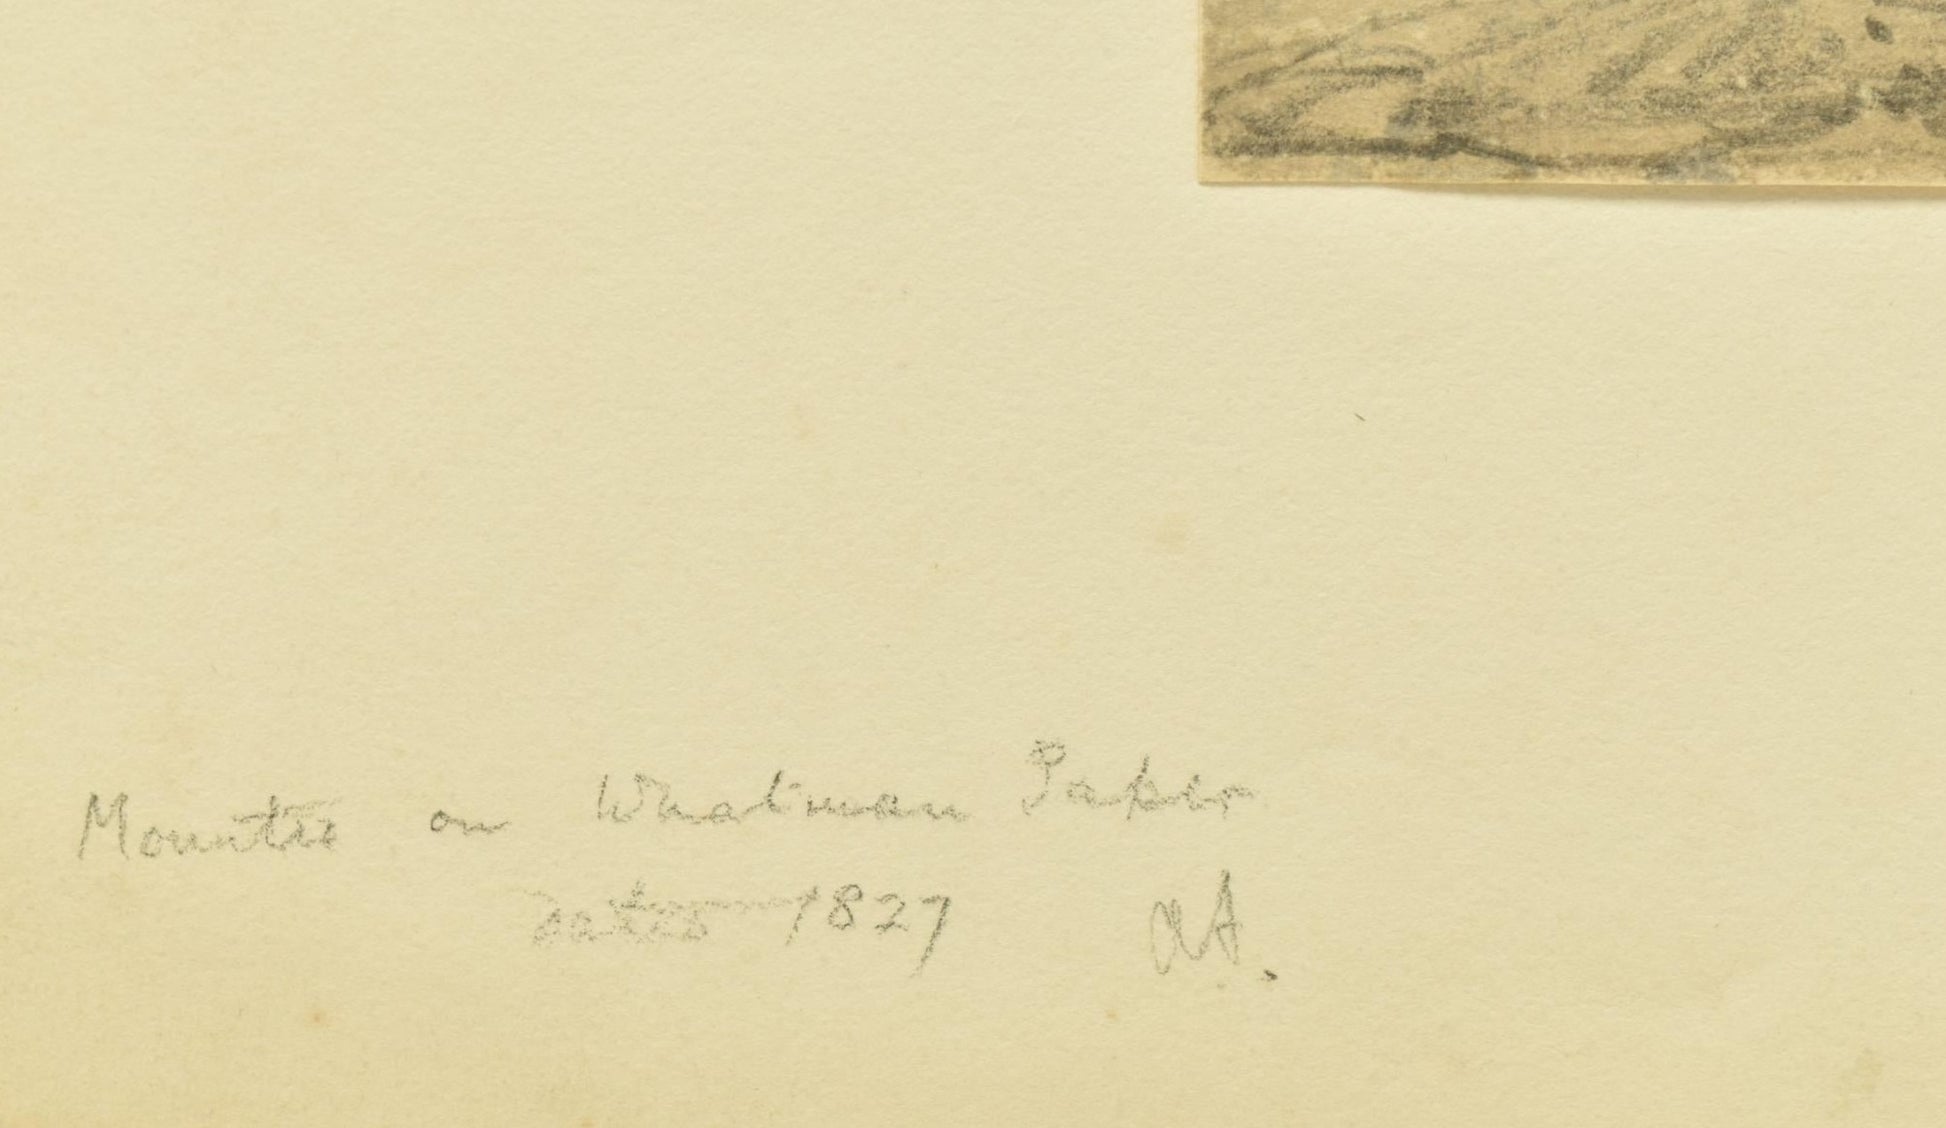 Mounted on Whatman Paper
dated 1827 AA.